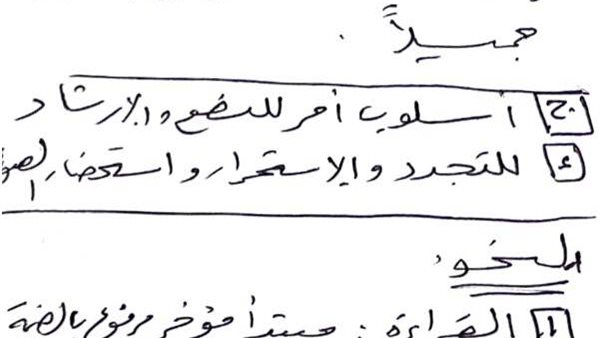 جميلاً .
ج أسلوب أمر للنصح والإرشاد
د للتجدد والاستمرار واستحضار الصو
النحو :
أ القراءة : مبتدأ مؤخر مرفوع بالضمة